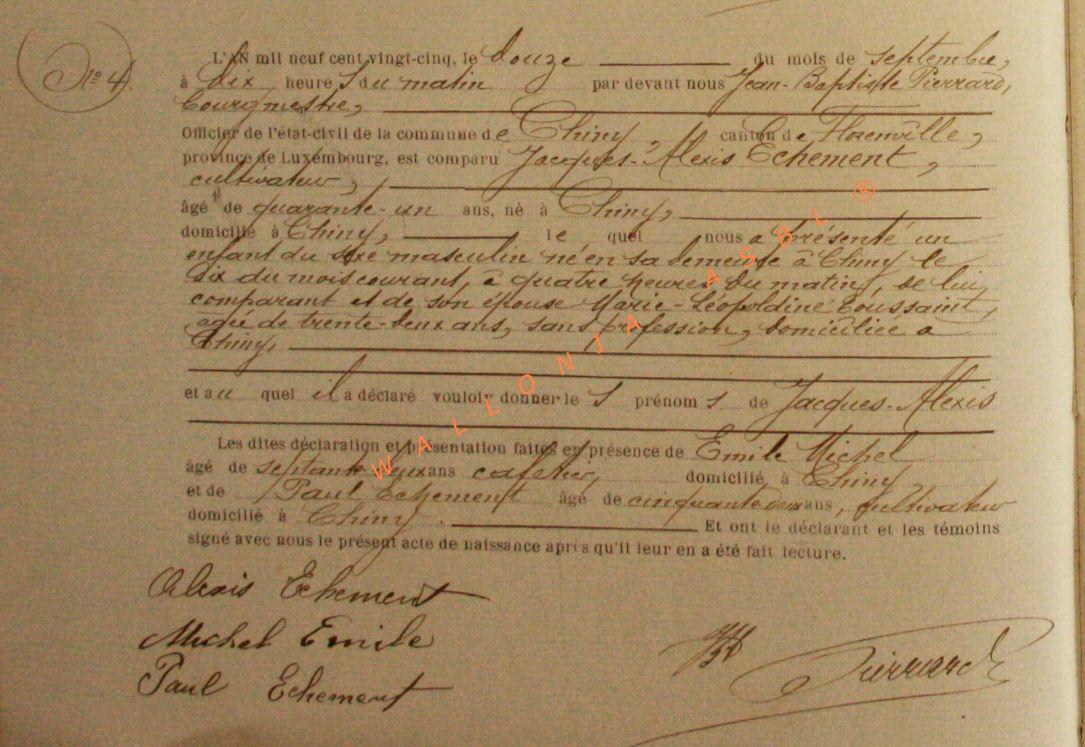 N° 4.
L'AN mil neuf cent vingt-cinq, le douze du mois de septembre,
à dix heures du matin par devant nous Jean-Baptiste Pierrard,
bourgmestre,
Officier de l'état-civil de la commune de Chiny, canton de Florenville,
province de Luxembourg, est comparu Jacques-Alexis Echement,
cultivateur,
âgé de quarante-un ans, né à Chiny,
domicilié à Chiny, le quel nous a présenté un
enfant du sexe masculin né en sa demeure à Chiny le
dix du mois courant, à quatre heures du matin, de lui
comparant et de son épouse Marie-Léopoldine Toussaint,
agée de trente-deux ans, sans profession, domiciliée à
Chiny,
et au quel il a déclaré vouloir donner les prénoms de Jacques-Alexis
Les dites déclaration et présentation faites en présence de Emile Michel
âgé de septante-deux ans cafetier, domicilié à Chiny
et de Paul Echement âgé de cinquante deux ans, cultivateur
domicilié à Chiny. Et ont le déclarant et les témoins
signé avec nous le présent acte de naissance après qu'il leur en a été fait lecture.
Alexis Echement
Michel Emile
Paul Echement
Pierrard
WALLONIA ASBL ®